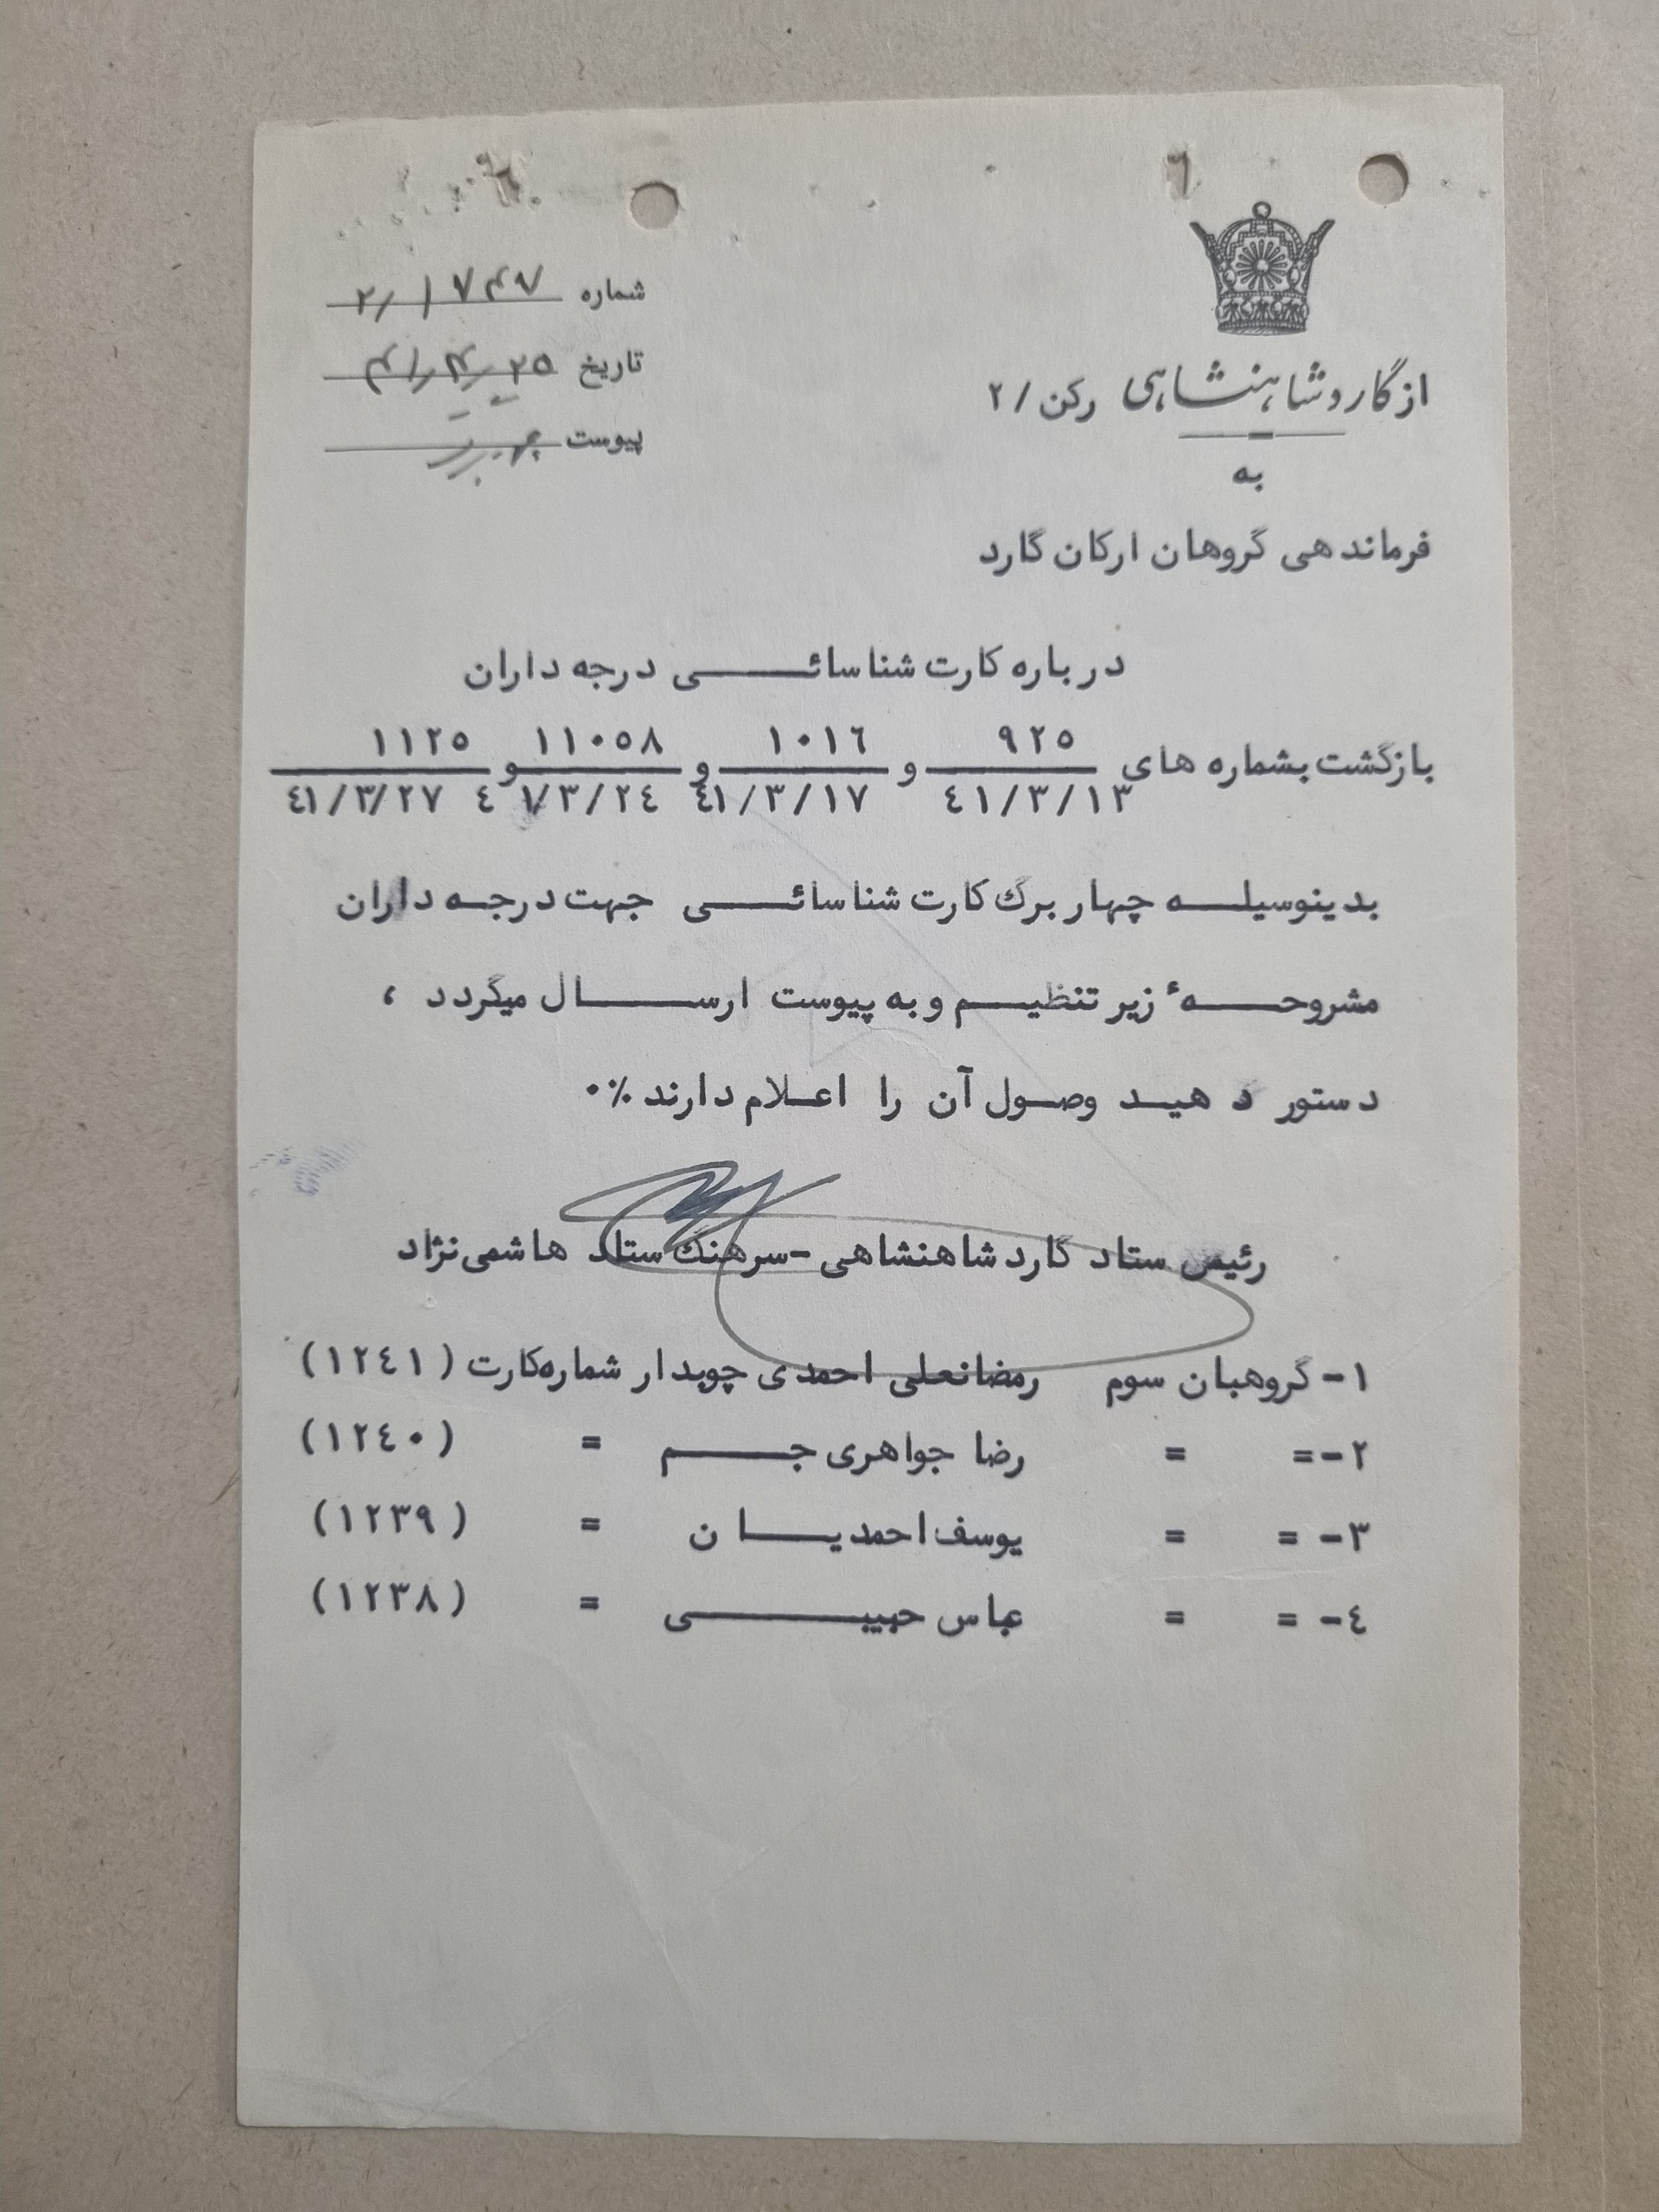 شماره ۲/۱۷۴۷
تاریخ ۴۱/۴/۲۵
پیوست
از گارد شاهنشاهی رکن /۲
به
فرماندهی گروهان ارکان گارد
درباره کارت شناسائی درجه داران
بازگشت بشماره های ۹۲۵ و ۱۰۱۶ و ۱۱۰۵۸ و ۱۱۲۵
۴۱/۳/۱۳ ۴۱/۳/۱۷ ۴۱/۳/۲۴ ۴۱/۳/۲۷
بدینوسیله چهار برگ کارت شناسائی جهت درجه داران
مشروحهٔ زیر تنظیم و به پیوست ارسال میگردد ،
دستور دهید وصول آن را اعلام دارند ٪۰
رئیس ستاد گارد شاهنشاهی - سرهنگ ستاد هاشمی نژاد
۱- گروهبان سوم رمضانعلی احمدی چوبدار شماره کارت (۱۲۴۱)
۲- = = رضا جواهری جم = (۱۲۴۰)
۳- = = یوسف احمدیان = (۱۲۳۹)
۴- = = عباس حبیبی = (۱۲۳۸)